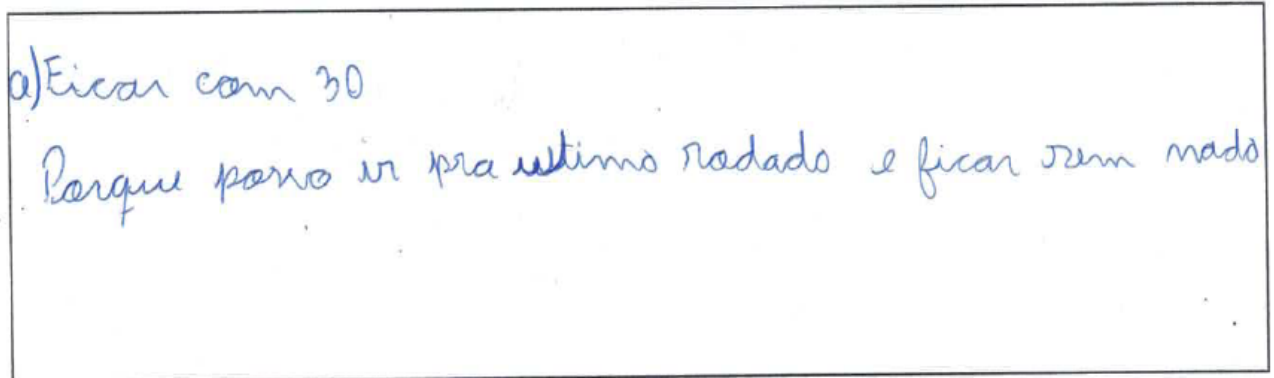 a) Ficar com 30
Porque posso ir pra ultima rodada e ficar sem nada